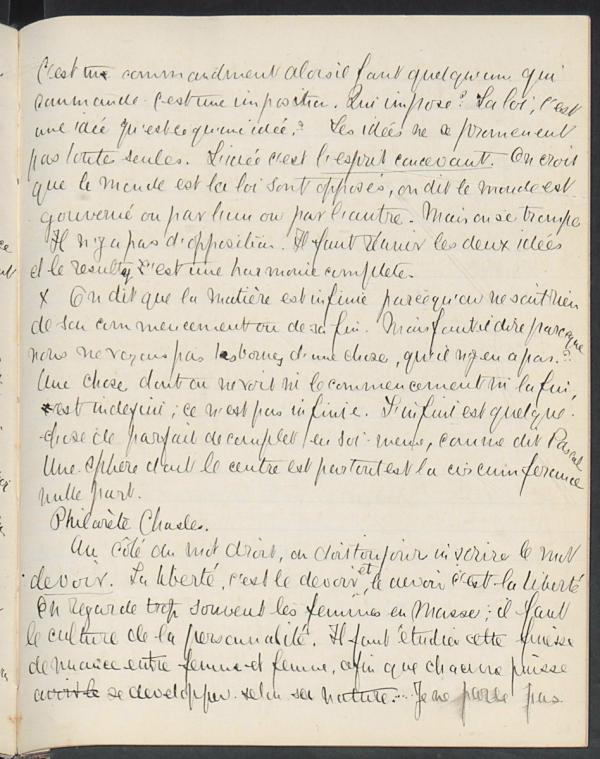 c'est un commandment alors il faut quelqu'un qui
commande c'est une imposition. Qui impose? La loi, c'est
une idée qu'est ce qu'une idée? Les idées ne se promenent
pas toutes seules. L'idée c'est l'esprit concevant. On croit
que le monde est la loi sont opposés, on dit le monde est
gouverné ou par l'un ou par l'autre. Mais on se trompe
Il n'y a pas d'opposition. Il faut réunir les deux idées
et le resultat c'est une harmonie complete.
x On dit que la matière est infinie parcequ'on ne sait rien
de son commencement ou de sa fin. Mais faut il dire parceque
nous ne voyons pas les bornes d'une chose, qu'il n'y en a pas?
Une chose dont on ne voit ni le commencement ni la fin,
est indefini; ce n'est pas infinie. L'infini est quelque
chose de parfait de complet en soi-meme, comme dit Pascal
Une sphère dont le centre est partout est la circumference
nulle part.
Philarète Chasles.
Au côté du mot droit, on doit toujour inscrire le mot
devoir. La liberté, c'est le devoir, et le devoir c'est la liberté
On regarde trop souvent les femmes en masse; il faut
le culture de la personnalité. Il faut étudier cette
de nuance entre femme et femme, afin que chacune puisse
avoir le se developper selon sa nature... Je ne parle pas